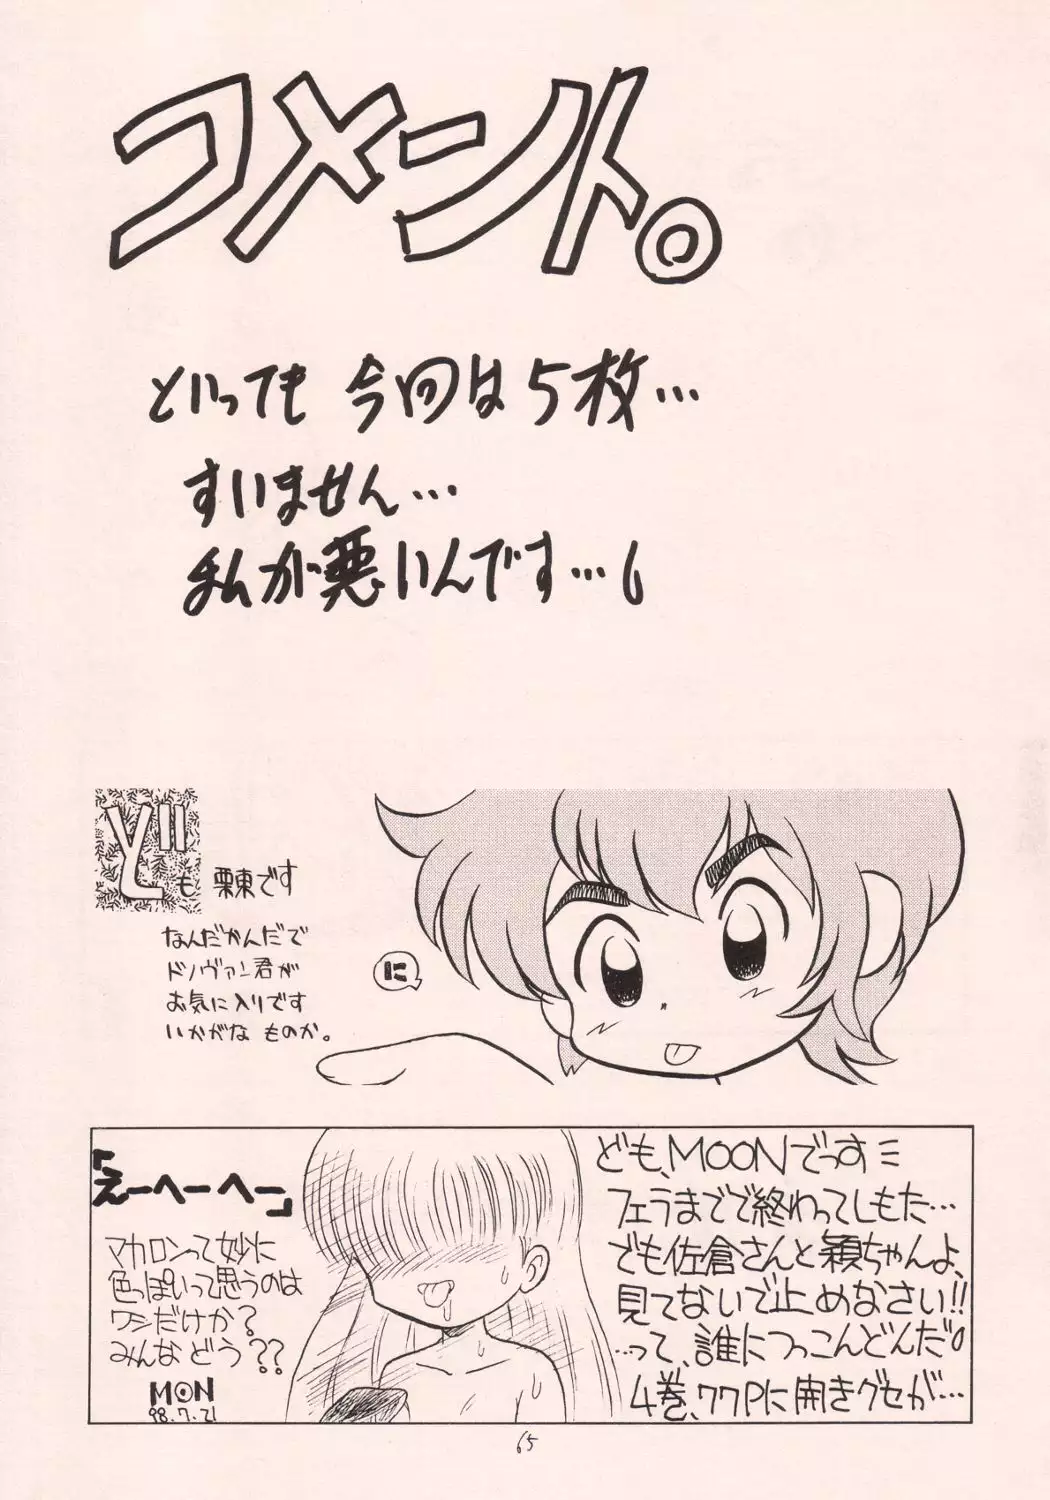 コメント。
といっても 今回は5枚…
すいません…
私が悪いんです…
ども 栗東です
なんだかんだで
ドノヴァン君が
お気に入りです
いかがな ものか。
に
「えーへーへー」
マカロンって妙に
色っぽいって思うのは
ワシだけか?
みんなどう??
MOON
98.7.21
ども、MOONでっす
フェラまでで終わってしもた…
でも佐倉さんと穎ちゃんよ、
見てないで止めなさい!!
…って、誰につっこんどんだ
4巻、77Pに開きグセが…
65